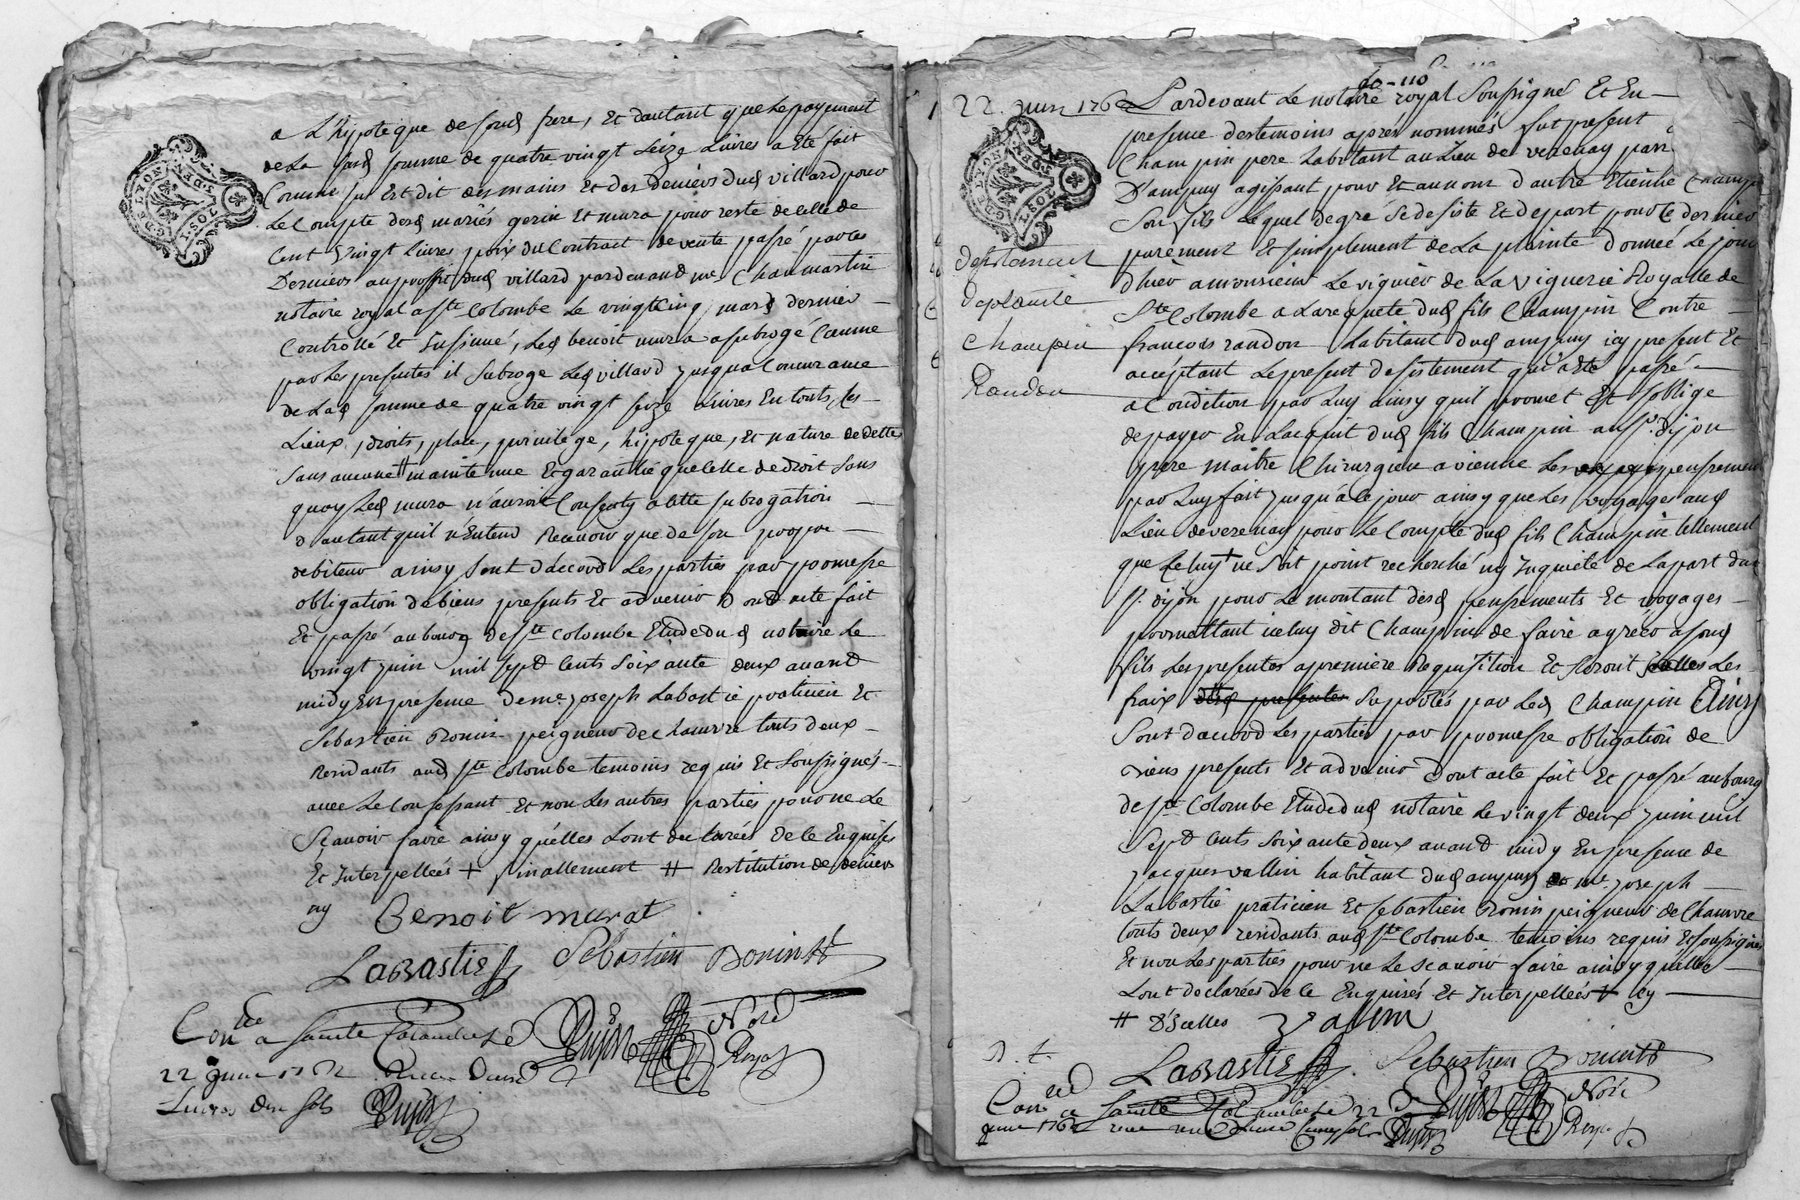 a L'hipoteque de soud frere, Et dautant que Le payement
de La sud somme de quatre vingt seize Livres a Eté fait
Comme sus Est dit des mains Et des deniers dud villard pour
Le Compte desd mariés gerin Et mura pour reste de celle de
Cent vingt Livres prix du Contract de vente passé par ces
Derniers au proffit dud villard pardevand me Chaumartin
notaire royal a ste Colombe Le vingt cinq mars dernier
Controllé Et Insinué, Led benoit mura a subrogé Comme
par Les presentes il subroge Led villard jusqua Concurance
de Lad somme de quatre vingt seize Livres En touts Les
Lieux, droits, place, privilege, hipoteque, Et nature de dettes
sans aucune # mainte nue Et garanthie que celle de droit sans
quoy Led mura n'auroit Consenty a cette subrogation
d'autant quil n'Entend Recevoir que de son propre
debiteur ainsy sont daccord Les parties par promesse
obligation de biens presents Et advenir Dont acte fait
Et passé au bourg de ste Colombe Etude dud notaire Le
vingt juin mil sept Cents soixante deux avant
midy En presence de me joseph Labastie praticien Et
Sebastien Bonin peigneur de chanvre touts deux
Residants aud ste Colombe temoins requis Et soussignés
avec Le Confessant Et non Les autres parties pour ne Le
Scavoir faire ainsy qu'elles L'ont declarées de ce Enquises
Et Interpellées + finallement # Restitution de deniers
ny Benoit murat
LABASTIE Sebastien Bonin
Conlle a Sainte Colombe le Dujor Nore
22 juin 1762 Recu Royal
Livres dix sols Dujor
22. juin 1762 Pardevant Le notaire royal soussigné Et En
60 - 110
presence des temoins aprés nommés fut present
Champin pere habitant au Lieu de verenay
D'ampuy agissant pour Et au nom d'autre Etienne Champin
Son fils Lequel de gré se desiste Et depart pour ce dernier
purement Et simplement de La plainte donnée Le jour
d'hier a monsieur Le viguier de La viguerie Royalle de
Ste Colombe a La requete dud fils Champin Contre
Desistement
de plainte
Champin
Randon
francois randon habitant dud ampuy icy present Et
acceptant Le present desistement qui a Eté passé
a Condition par Luy ainsy quil promet Et s'oblige
de payer En L'acquit dud fils Champin au sr. dijon
pere maitre Chirurgien a vienne Les pensements
par Luy fait jusqu'à ce jour ainsy que Les voyages aud
Lieu de verenay pour Le Compte dud fils Champin tellement
que Celuy + ne soit point recherché ny Inquieté de La part dud
sr. dijon pour Le montant desd pensements Et voyages
promettant iceluy dit Champin de faire agreer a soud
fils Les presentes a premiere Requisition Et seront Les
fraix desd presentes suportés par Led Champin Ainsy
Sont daccord Les parties par promesse obligation de
biens presents Et advenir Dont acte fait Et passé au bourg
de ste Colombe Etude dud notaire Le vingt deux juin mil
Sept Cents soixante deux avant midy En presence de
jacques vallin habitant dud ampuy me joseph
Labastie praticien Et sebastien Bonin peigneur de Chanvre
touts deux residants aud ste Colombe temoins requis Et soussignés
Et non Les parties pour ne Le scavoir faire ainsy quelles
L'ont declarées de ce Enquises Et Interpellées + cy
# D'Icelles Valin
LABASTIE Sebastien Bonin
Con a Sainte Colombe le 22 Dujor Nore
juin 1762 Dujor Royal